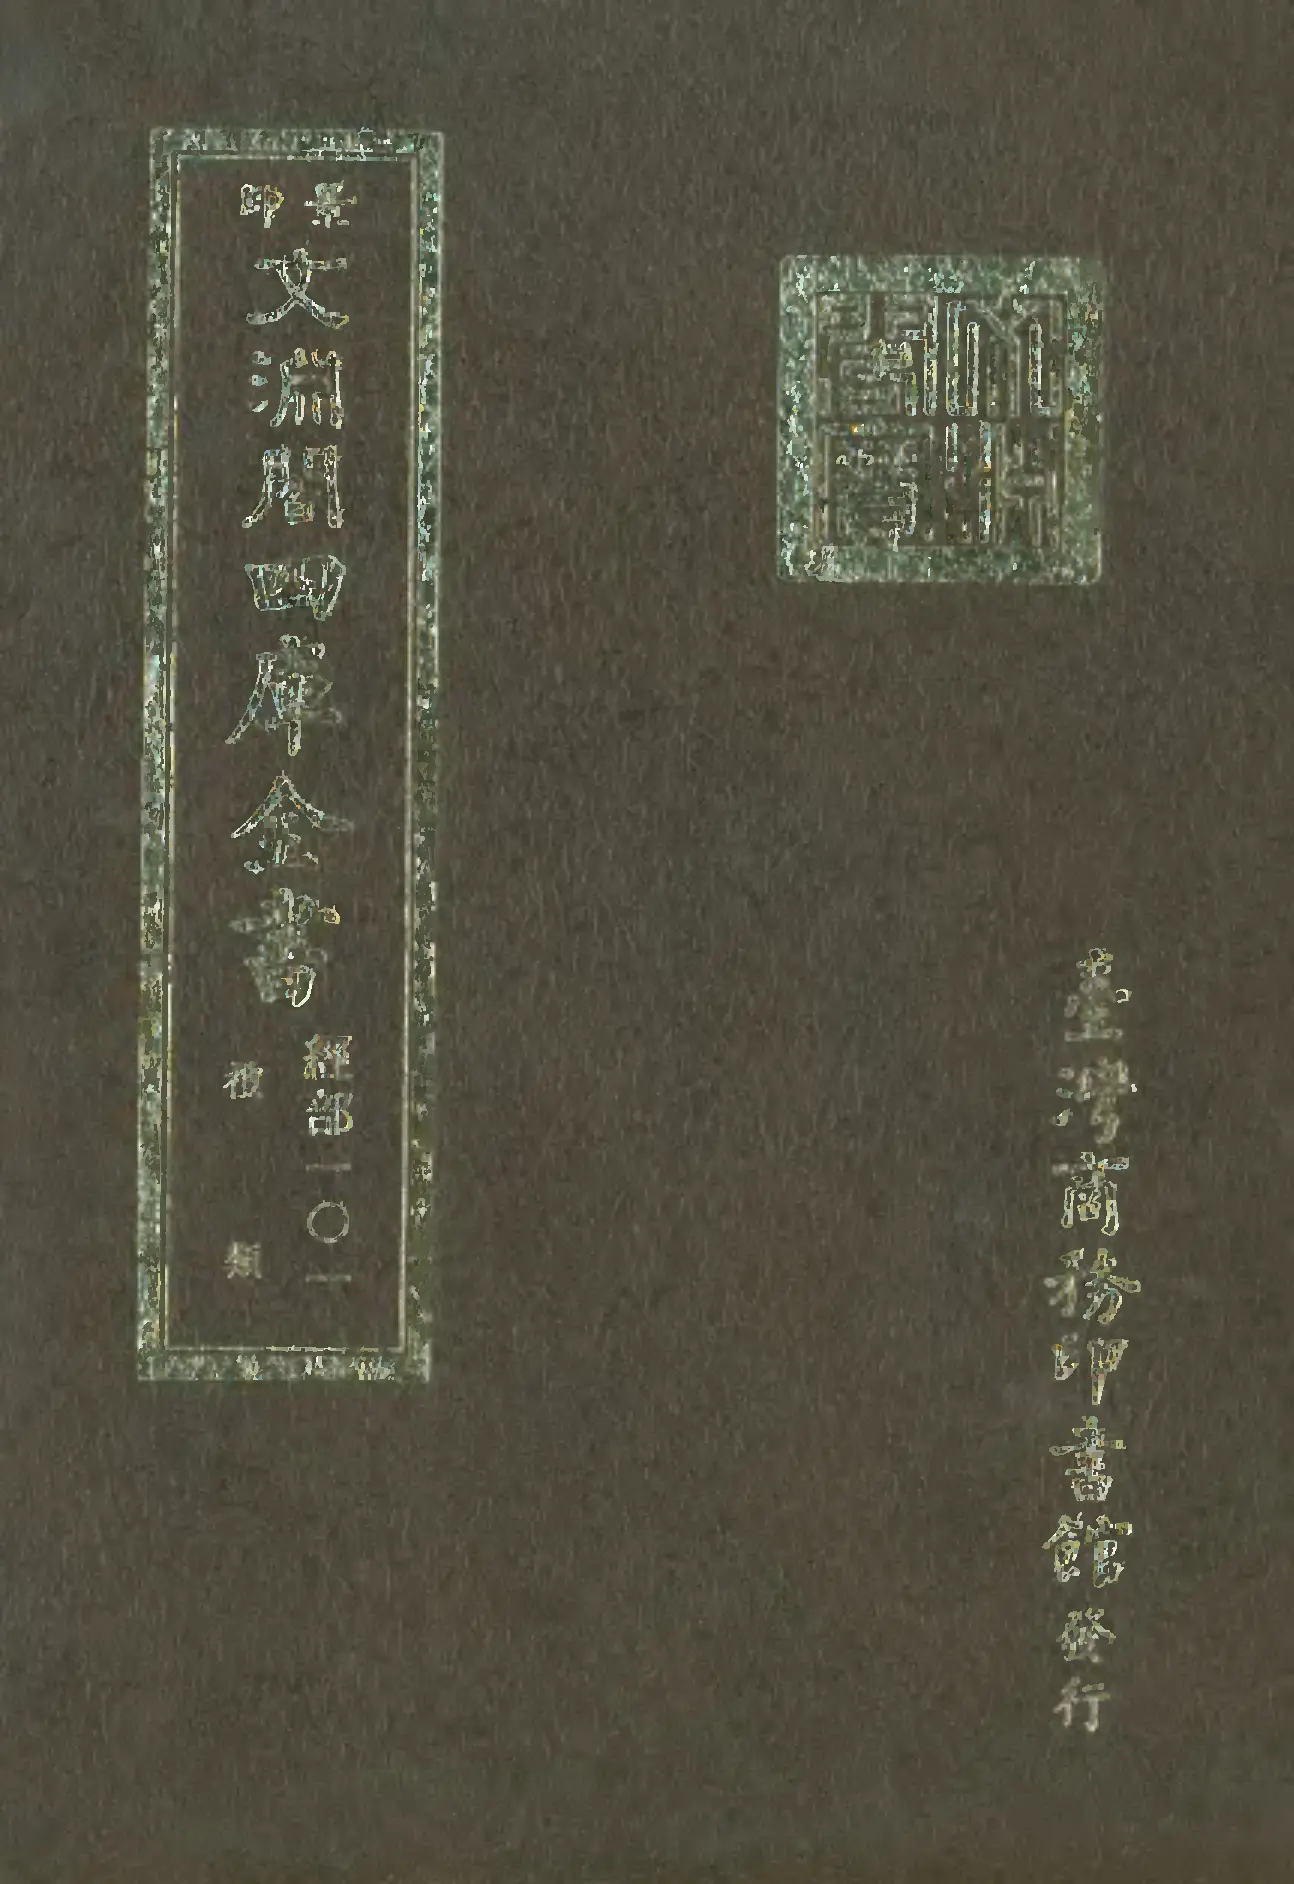 景印
文淵閣四庫全書
經部一〇一
禮類
臺灣商務印書館發行